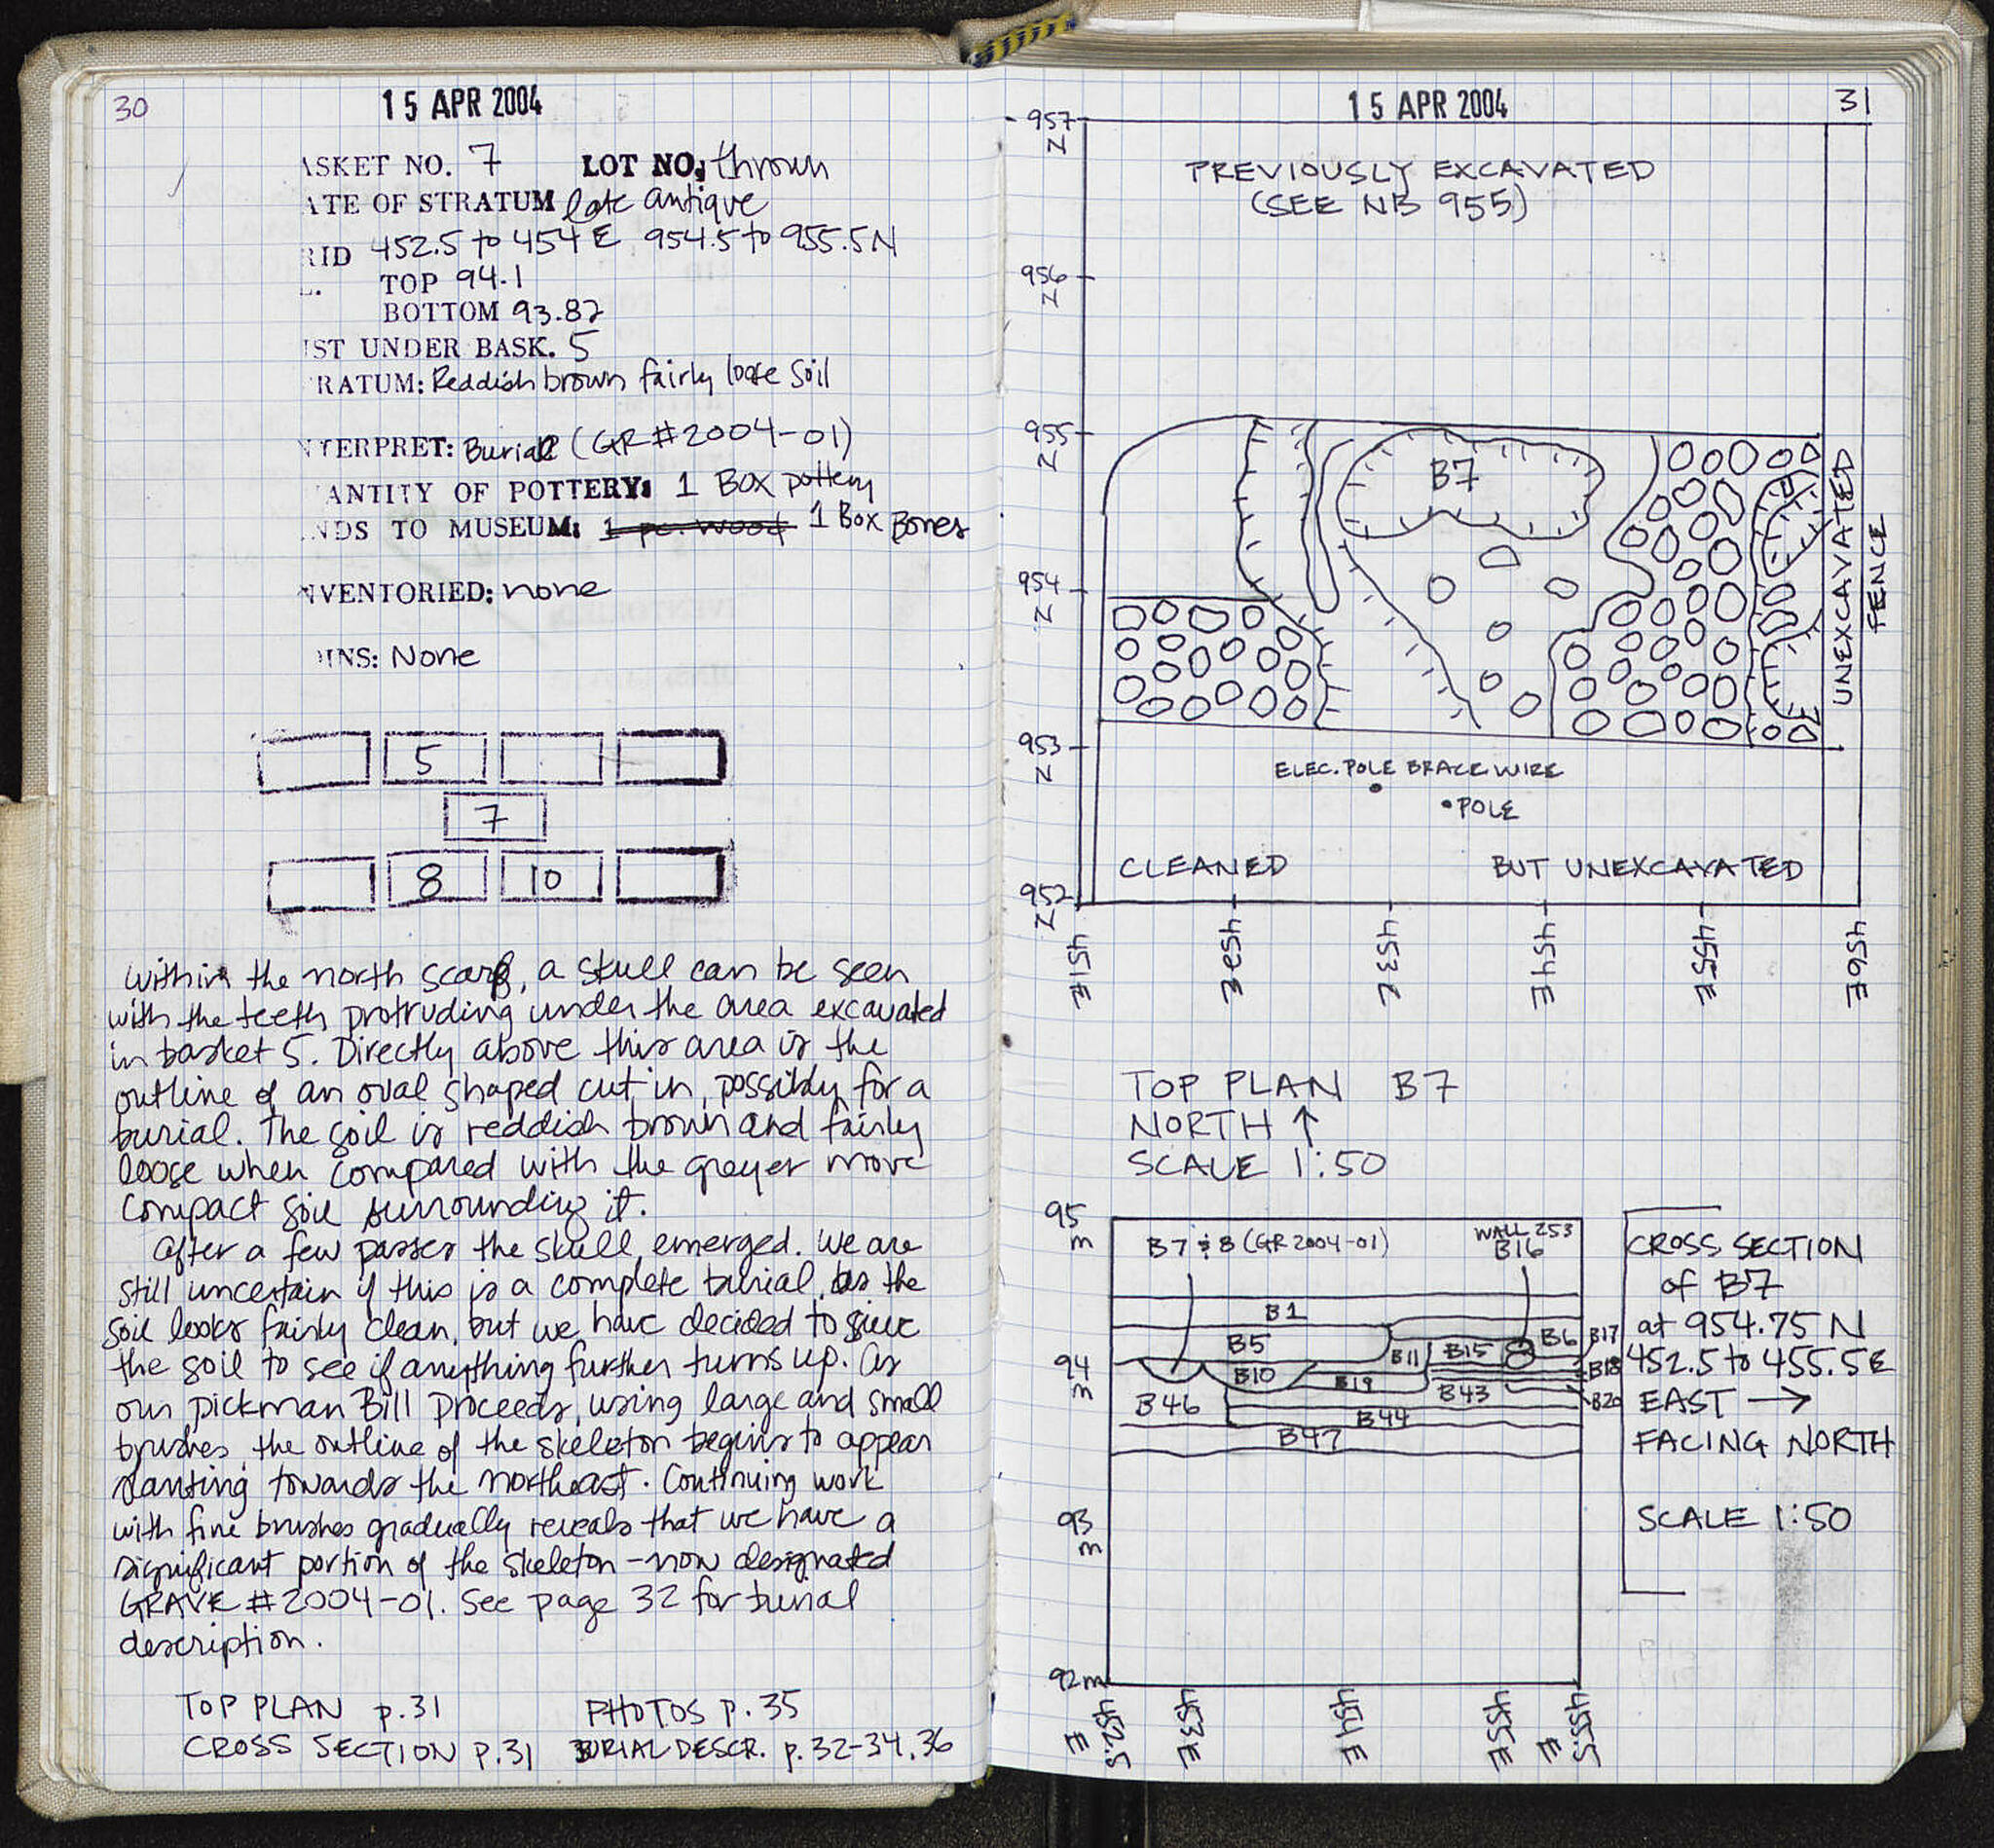 30
15 APR 2004
ASKET NO. 7 LOT NO. thrown
ATE OF STRATUM late antique
RID 452.5 to 454 E 954.5 to 955.5 N
L. TOP 94.1
BOTTOM 93.82
ST UNDER BASK. 5
RATUM: Reddish brown fairly loose soil
NTERPRET: Burial (GR #2004-01)
ANTITY OF POTTERY: 1 Box pottery
NDS TO MUSEUM: 1 pc. wood 1 Box Bones
NVENTORIED: none
INS: None
5
7
8 10
Within the north scarp, a skull can be seen
with the teeth protruding under the area excavated
in basket 5. Directly above this area is the
outline of an oval shaped cut in, possibly for a
burial. The soil is reddish brown and fairly
loose when compared with the greyer more
compact soil surrounding it.
After a few passes the skull emerged. We are
still uncertain if this is a complete burial, as the
soil looks fairly clean, but we have decided to sieve
the soil to see if anything further turns up. As
our pickman Bill proceeds, using large and small
brushes, the outline of the skeleton begins to appear
slanting towards the northeast. Continuing work
with fine brushes gradually reveals that we have a
significant portion of the skeleton - now designated
GRAVE #2004-01. See page 32 for burial
description.
TOP PLAN p.31 PHOTOS p.35
CROSS SECTION p.31 BURIAL DESCR. p.32-34,36
15 APR 2004
31
957 N
PREVIOUSLY EXCAVATED
(SEE NB 955)
956 N
955 N
B7
UNEXCAVATED
FENCE
954 N
953 N
ELEC. POLE BRACE WIRE
POLE
CLEANED BUT UNEXCAVATED
952 N
451 E 452 E 453 E 454 E 455 E 456 E
TOP PLAN B7
NORTH ↑
SCALE 1:50
95 m
B7 & 8 (GR 2004-01)
WALL 253
B16
B1
B5 B11 B15 B6 B17
94 m
B10 B19 B18
B46 B43 B20
B44
B47
93 m
92 m
452.5 E 453 E 454 E 455 E 455.5 E
CROSS SECTION
of B7
at 954.75 N
452.5 to 455.5 E
EAST →
FACING NORTH
SCALE 1:50